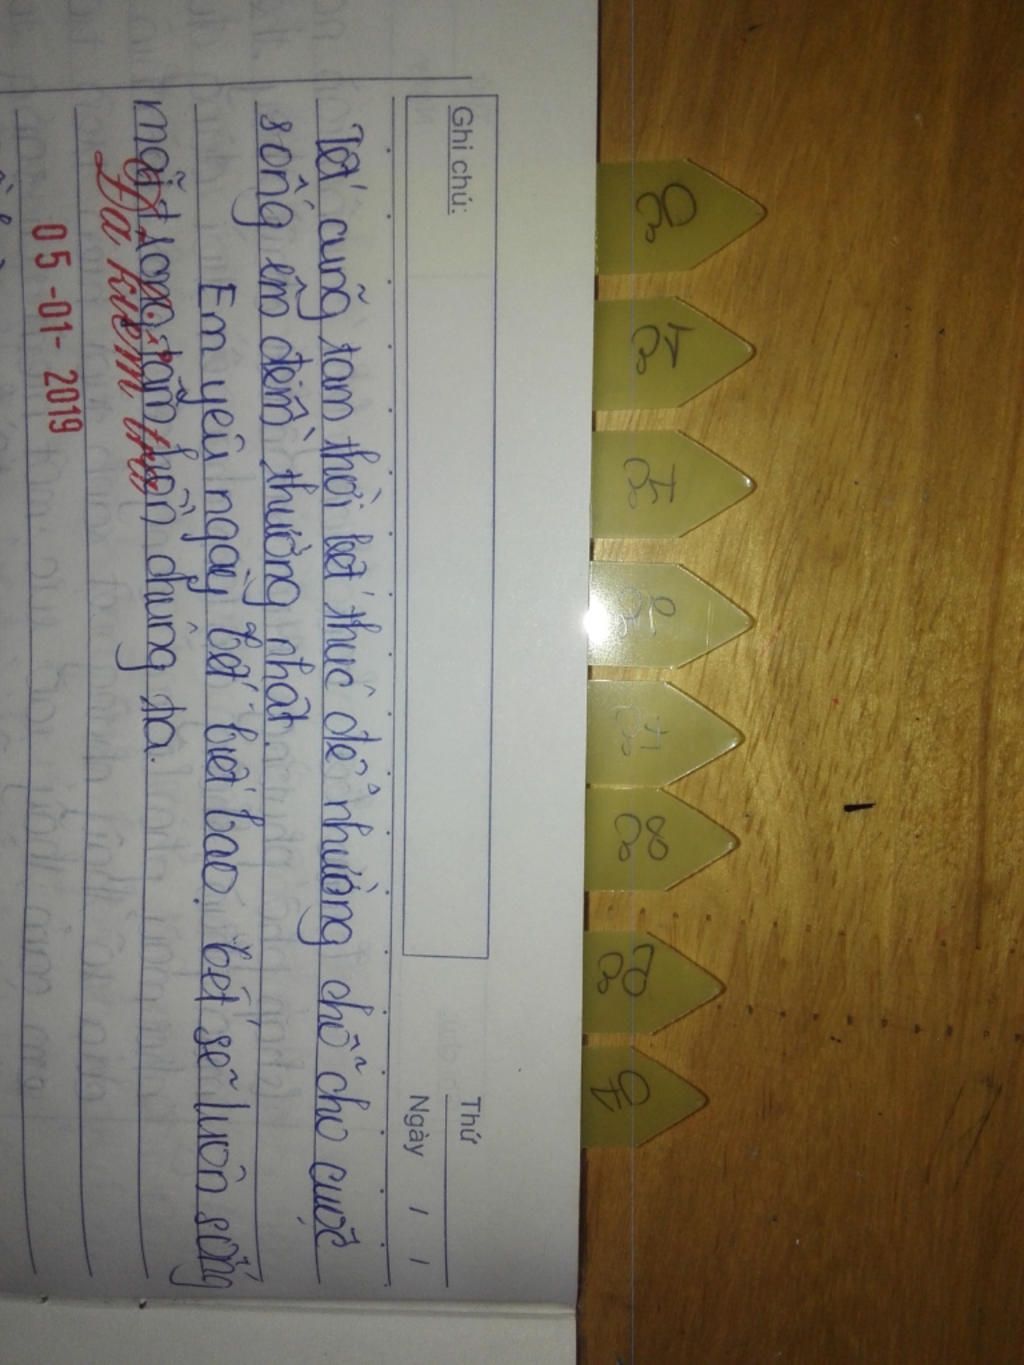 Ghi chú:
Thứ
Ngày / /
Tết cũng tạm thời kết thúc để nhường chỗ cho cuộc
sống êm đềm thường nhật
Em yêu ngày tết biết bao. tết sẽ luôn sống
mãi trong tâm hồn chúng ta.
Đã kiểm tra
05-01-2019